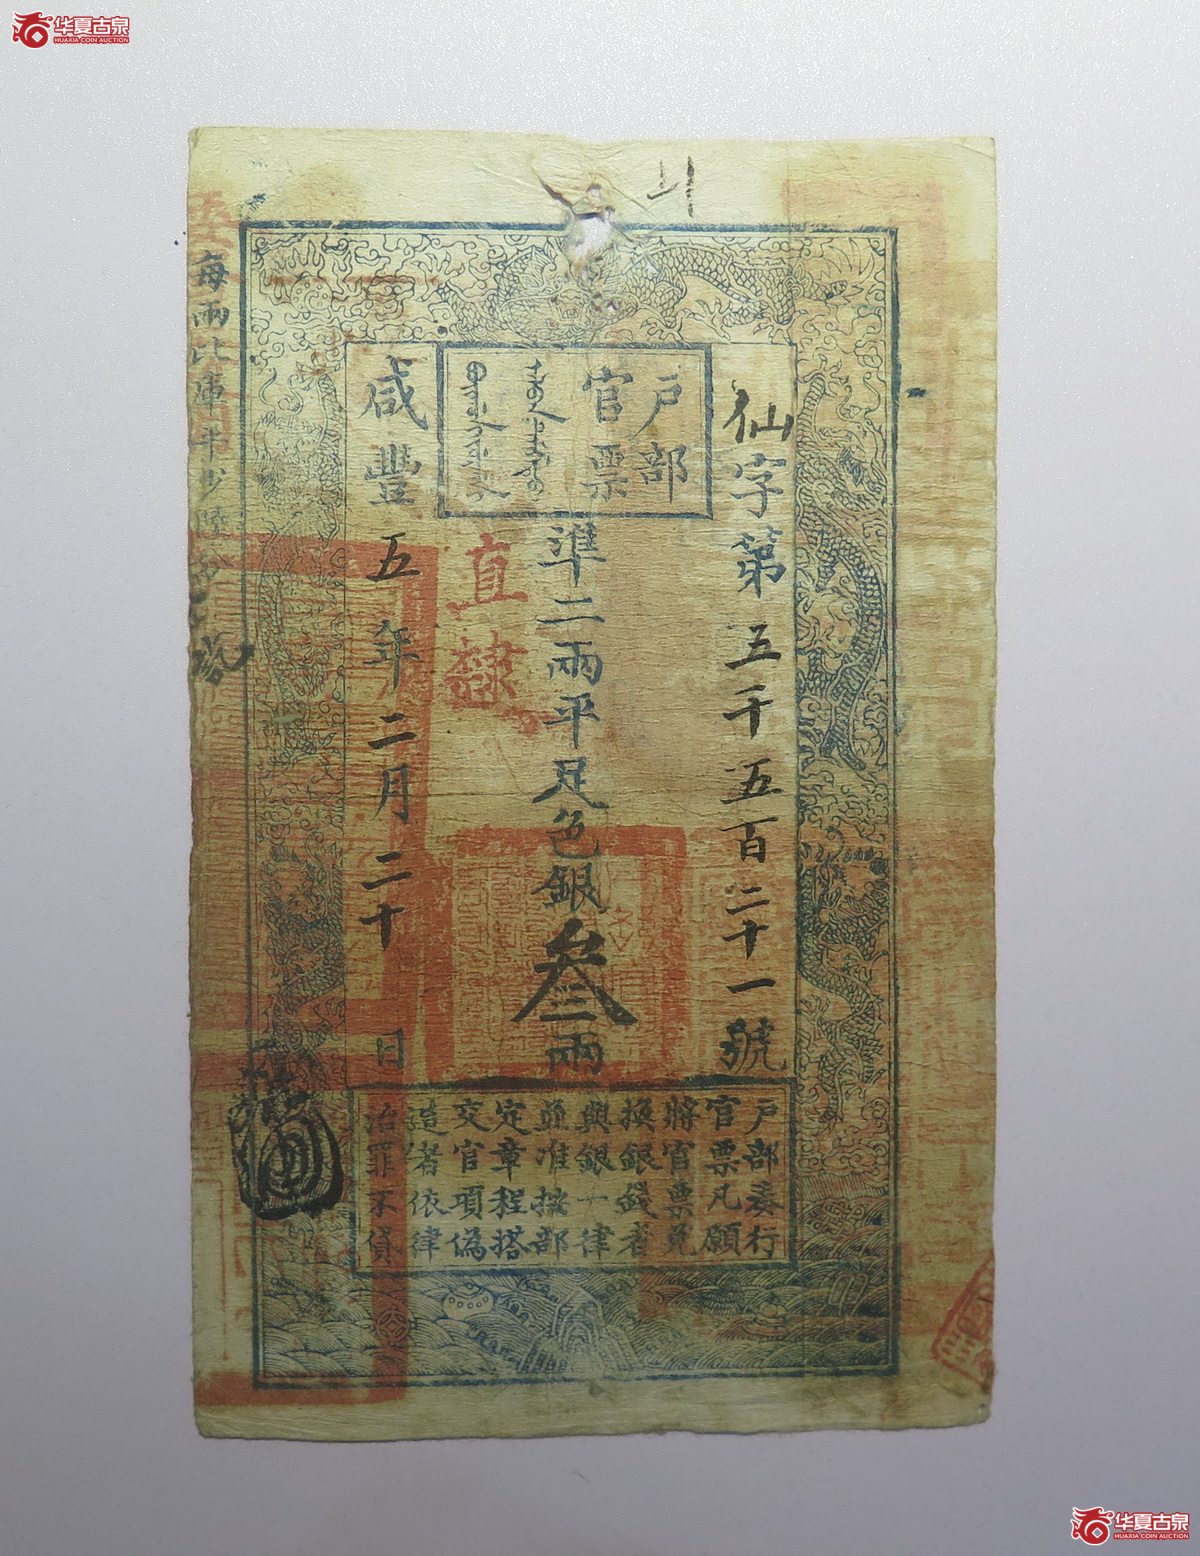 华夏古泉
HUAXIA COIN AUCTION
戶部
官票
仙字第五千五百二十一號
準二兩平足色銀叁兩
直隸
咸豐五年二月二十日
每兩比庫平少陸分
戶部奏行
官票凡願
將官票兌
換銀錢者
與銀一律
並准按部
定章程搭
交官項偽
造者依律
治罪不貸
华夏古泉
HUAXIA COIN AUCTION